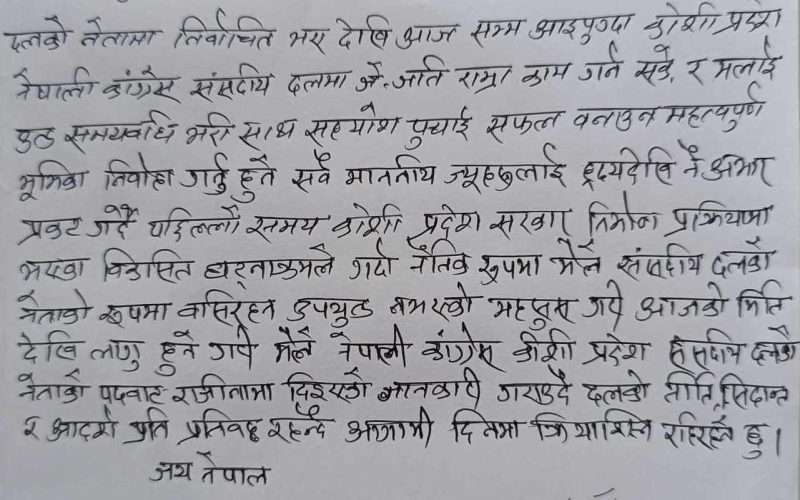 दलको नेतामा निर्वाचित भए देखि आज सम्म आइपुग्दा कोशी प्रदेश
नेपाली कांग्रेस संसदीय दलमा जे.जति राम्रा काम गर्न सके, र मलाई
पुरा समयावधि भरी साथ सहयोग पुर्याई सफल बनाउन महत्वपुर्ण
भूमिका निर्वाह गर्नु हुने सबै माननीय ज्यूहरुलाई हृदयदेखि नै आभार
प्रकट गर्दै पछिल्लो समय कोशी प्रदेश सरकार निर्माण प्रक्रियामा
भएका विकसित घटनाक्रमले गर्दा नैतिक रुपमा मैले संसदीय दलको
नेताको रुपमा बसिरहन उपयुक्त नभएको महसुस गरी आजको मिति
देखि लागु हुने गरी मैले नेपाली कांग्रेस कोशी प्रदेश संसदीय दलको
नेताको पदबाट राजीनामा दिइएको जानकारी गराउदै दलको नीति, सिदान्त
र आदर्श प्रति प्रतिवद्ध रहन्दै आगामी दिनमा क्रियाशिल रहिरहने छु।
जय नेपाल